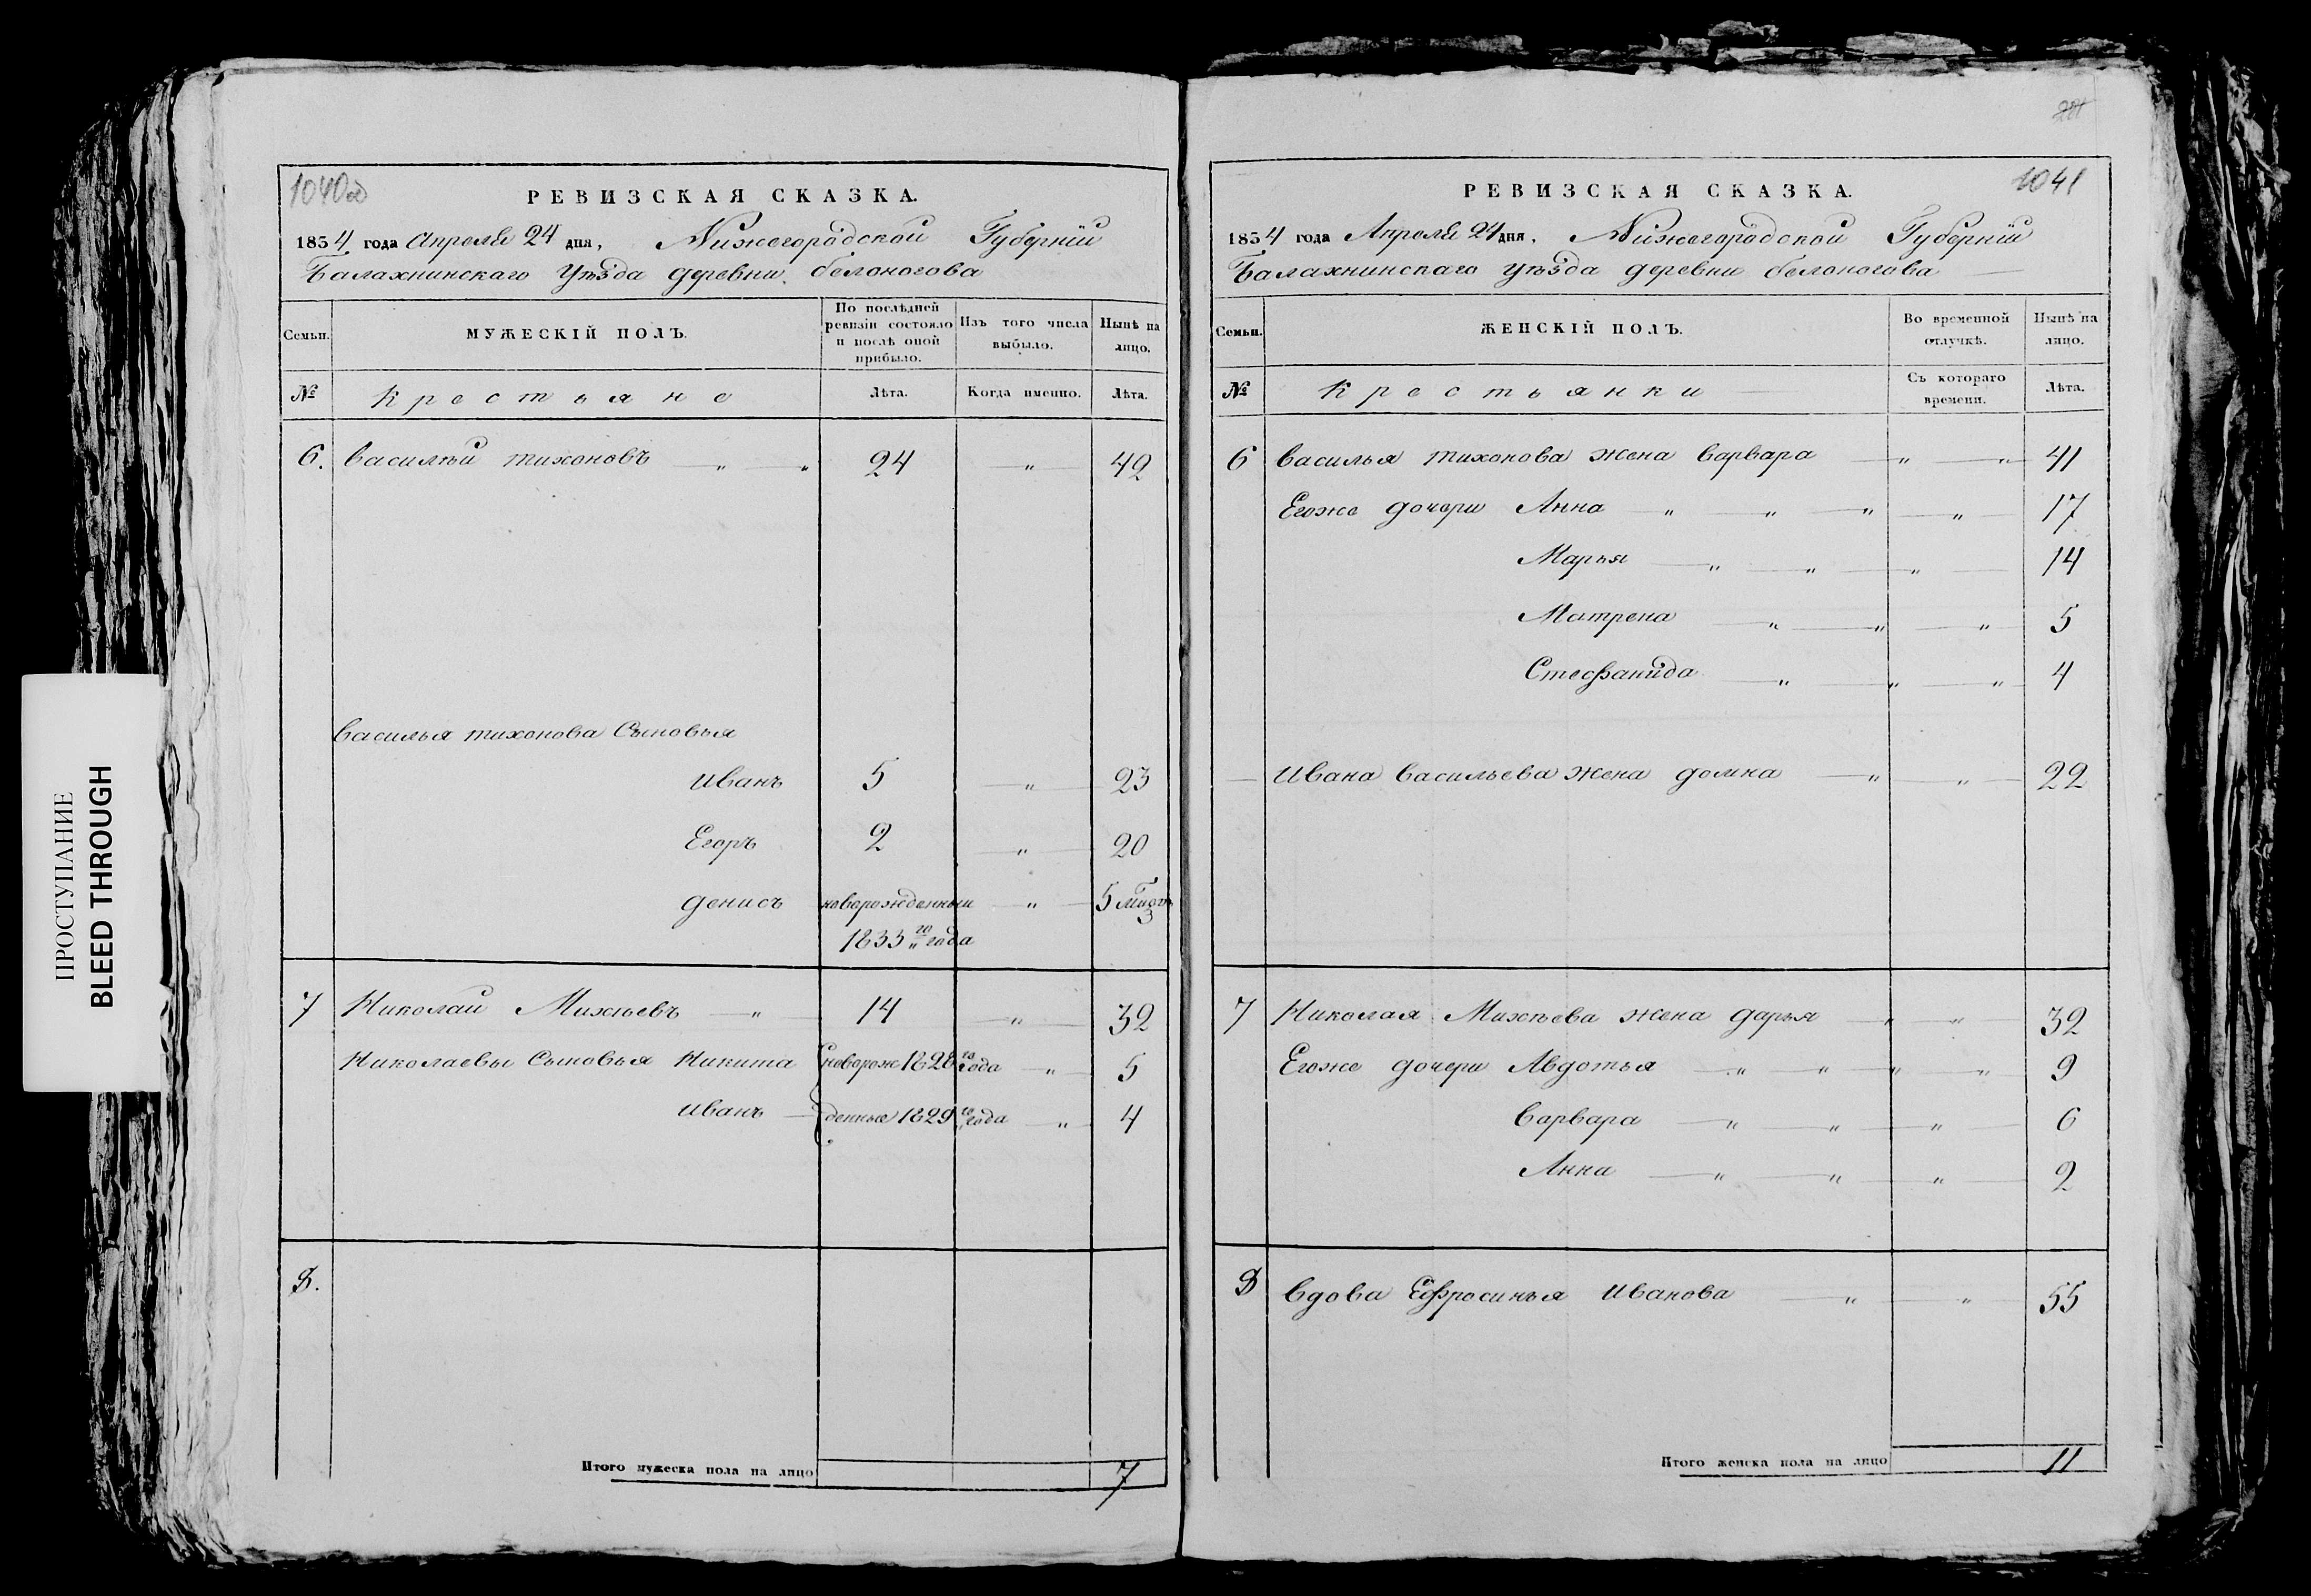 ПРОСТУПАНИЕ
BLEED THROUGH
1040об
РЕВИЗСКАЯ СКАЗКА.
1854 года Апреля 24 дня, Нижегородской Губернiи
Балахнинскаго Уѣзда деревни белоногова
Семьи.
МУЖЕСКIЙ ПОЛЪ.
По послѣдней ревизiи состояло и послѣ оной прибыло.
Изъ того числа выбыло.
Нынѣ на лицо.
№ Крестьяне Лѣта. Когда именно. Лѣта.
6. Василѣй тихоновъ „ „ 24 „ 42
Василья тихонова Сыновья
Иванъ 5 „ 23
Егоръ 2 „ 20
денисъ новорожденный „ 5 
1833го года
7 Николай Михѣевъ „ 14 „ 32
Николаевы Сыновья Никита новорож 1828го года „ 5
Иванъ денные 1829го года „ 4
8.
Итого мужеска пола на лицо 7
1041
РЕВИЗСКАЯ СКАЗКА.
1854 года Апреля 24 дня. Нижегородской Губернiи
Балахнинскаго уѣзда деревни белоногова
Семьи.
ЖЕНСКIЙ ПОЛЪ.
Во временной отлучкѣ.
Нынѣ на лицо.
№ Крестьянки Съ котораго времени. Лѣта.
6 Василья тихонова жена Варвара „ „ 41
Егоже дочери Анна „ „ „ „ 17
Марья „ „ „ 14
Матрена „ „ „ 5
Стефанида „ „ „ 4
Ивана Васильева жена домна „ „ 22
7 Николая Михѣева жена дарья „ „ 32
Егоже дочери Авдотья „ „ „ „ 9
Варвара „ „ „ 6
Анна „ „ „ 2
8 Вдова Ефросинья Иванова „ „ 55
Итого женска пола на лицо 11